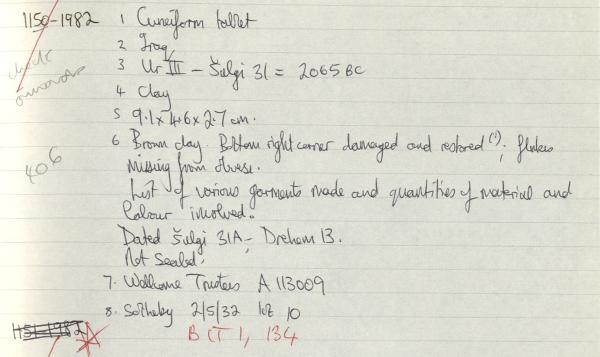 1150-1982 1 Cuneiform tablet
2 Iraq
3 Ur III - Šulgi 31 = 2065 BC
check
4 Clay
5 9.1 x 4.6 x 2.7 cm.
6 Brown clay. Bottom right corner damaged and restored (1); flakes
missing from obverse.
406
List of various garments made and quantities of material and
labour involved.
Dated Šulgi 31A - Drehem 13.
Not Sealed.
7. Wellcome Trustees A 113009
8. Sotheby 2/5/32 lot 10
1151-1982
BCT 1, 134